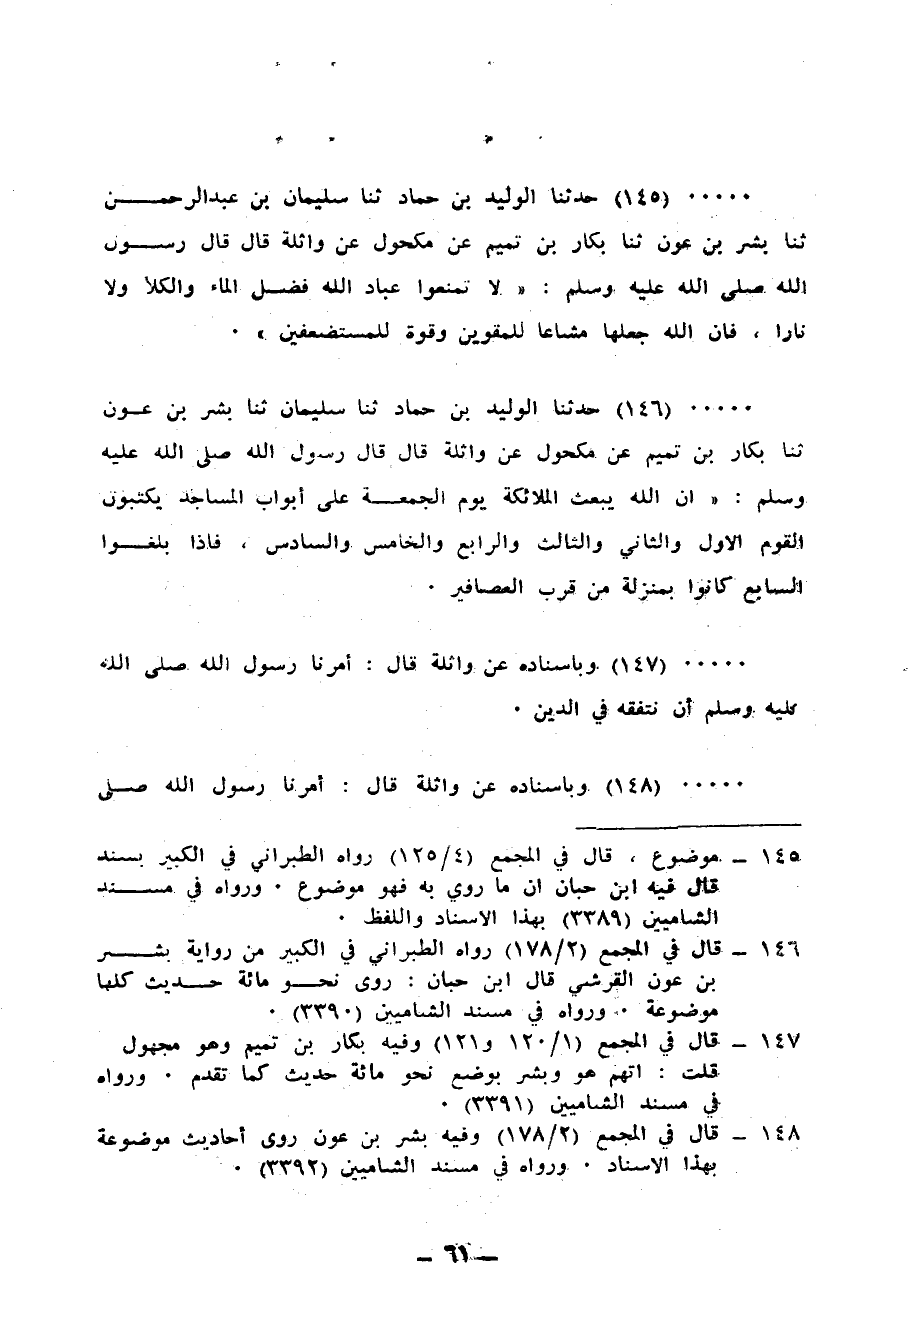 ٠٠٠٠٠ (١٤٥) حدثنا الوليد بن حماد ثنا سليمان بن عبدالرحمن
ثنا بشر بن عون ثنا بكار بن تميم عن مكحول عن واثلة قال قال رسول
الله صلى الله عليه وسلم : « لا تمنعوا عباد الله فضل الماء والكلأ ولا
نارا ، فان الله جعلها مشاعا للمقوين وقوة للمستضعفين » ٠
٠٠٠٠٠ (١٤٦) حدثنا الوليد بن حماد ثنا سليمان ثنا بشر بن عون
ثنا بكار بن تميم عن مكحول عن واثلة قال قال رسول الله صلى الله عليه
وسلم : « ان الله يبعث الملائكة يوم الجمعة على أبواب المساجد يكتبون
القوم الاول والثاني والثالث والرابع والخامس والسادس ، فاذا بلغوا
السابع كانوا بمنزلة من قرب العصافير ٠
٠٠٠٠٠ (١٤٧) وباسناده عن واثلة قال : أمرنا رسول الله صلى الله
عليه وسلم أن نتفقه في الدين ٠
٠٠٠٠٠ (١٤٨) وباسناده عن واثلة قال : أمرنا رسول الله صلى
١٤٥ ــ موضوع ، قال في المجمع (١٢٥/٤) رواه الطبراني في الكبير بسند
قال فيه ابن حبان ان ما روي به فهو موضوع ٠ ورواه في مسند
الشاميين (٣٣٨٩) بهذا الاسناد واللفظ ٠
١٤٦ ــ قال في المجمع (١٧٨/٢) رواه الطبراني في الكبير من رواية بشر
بن عون القرشي قال ابن حبان : روى نحو مائة حديث كلها
موضوعة ٠ ورواه في مسند الشاميين (٣٣٩٠) ٠
١٤٧ ــ قال في المجمع (١٢٠/١ و١٢١) وفيه بكار بن تميم وهو مجهول
قلت : اتهم هو وبشر بوضع نحو مائة حديث كما تقدم ٠ ورواه
في مسند الشاميين (٣٣٩١) ٠
١٤٨ ــ قال في المجمع (١٧٨/٢) وفيه بشر بن عون روى أحاديث موضوعة
بهذا الاسناد ٠ ورواه في مسند الشاميين (٣٣٩٢) ٠
ــ ٦١ ــ